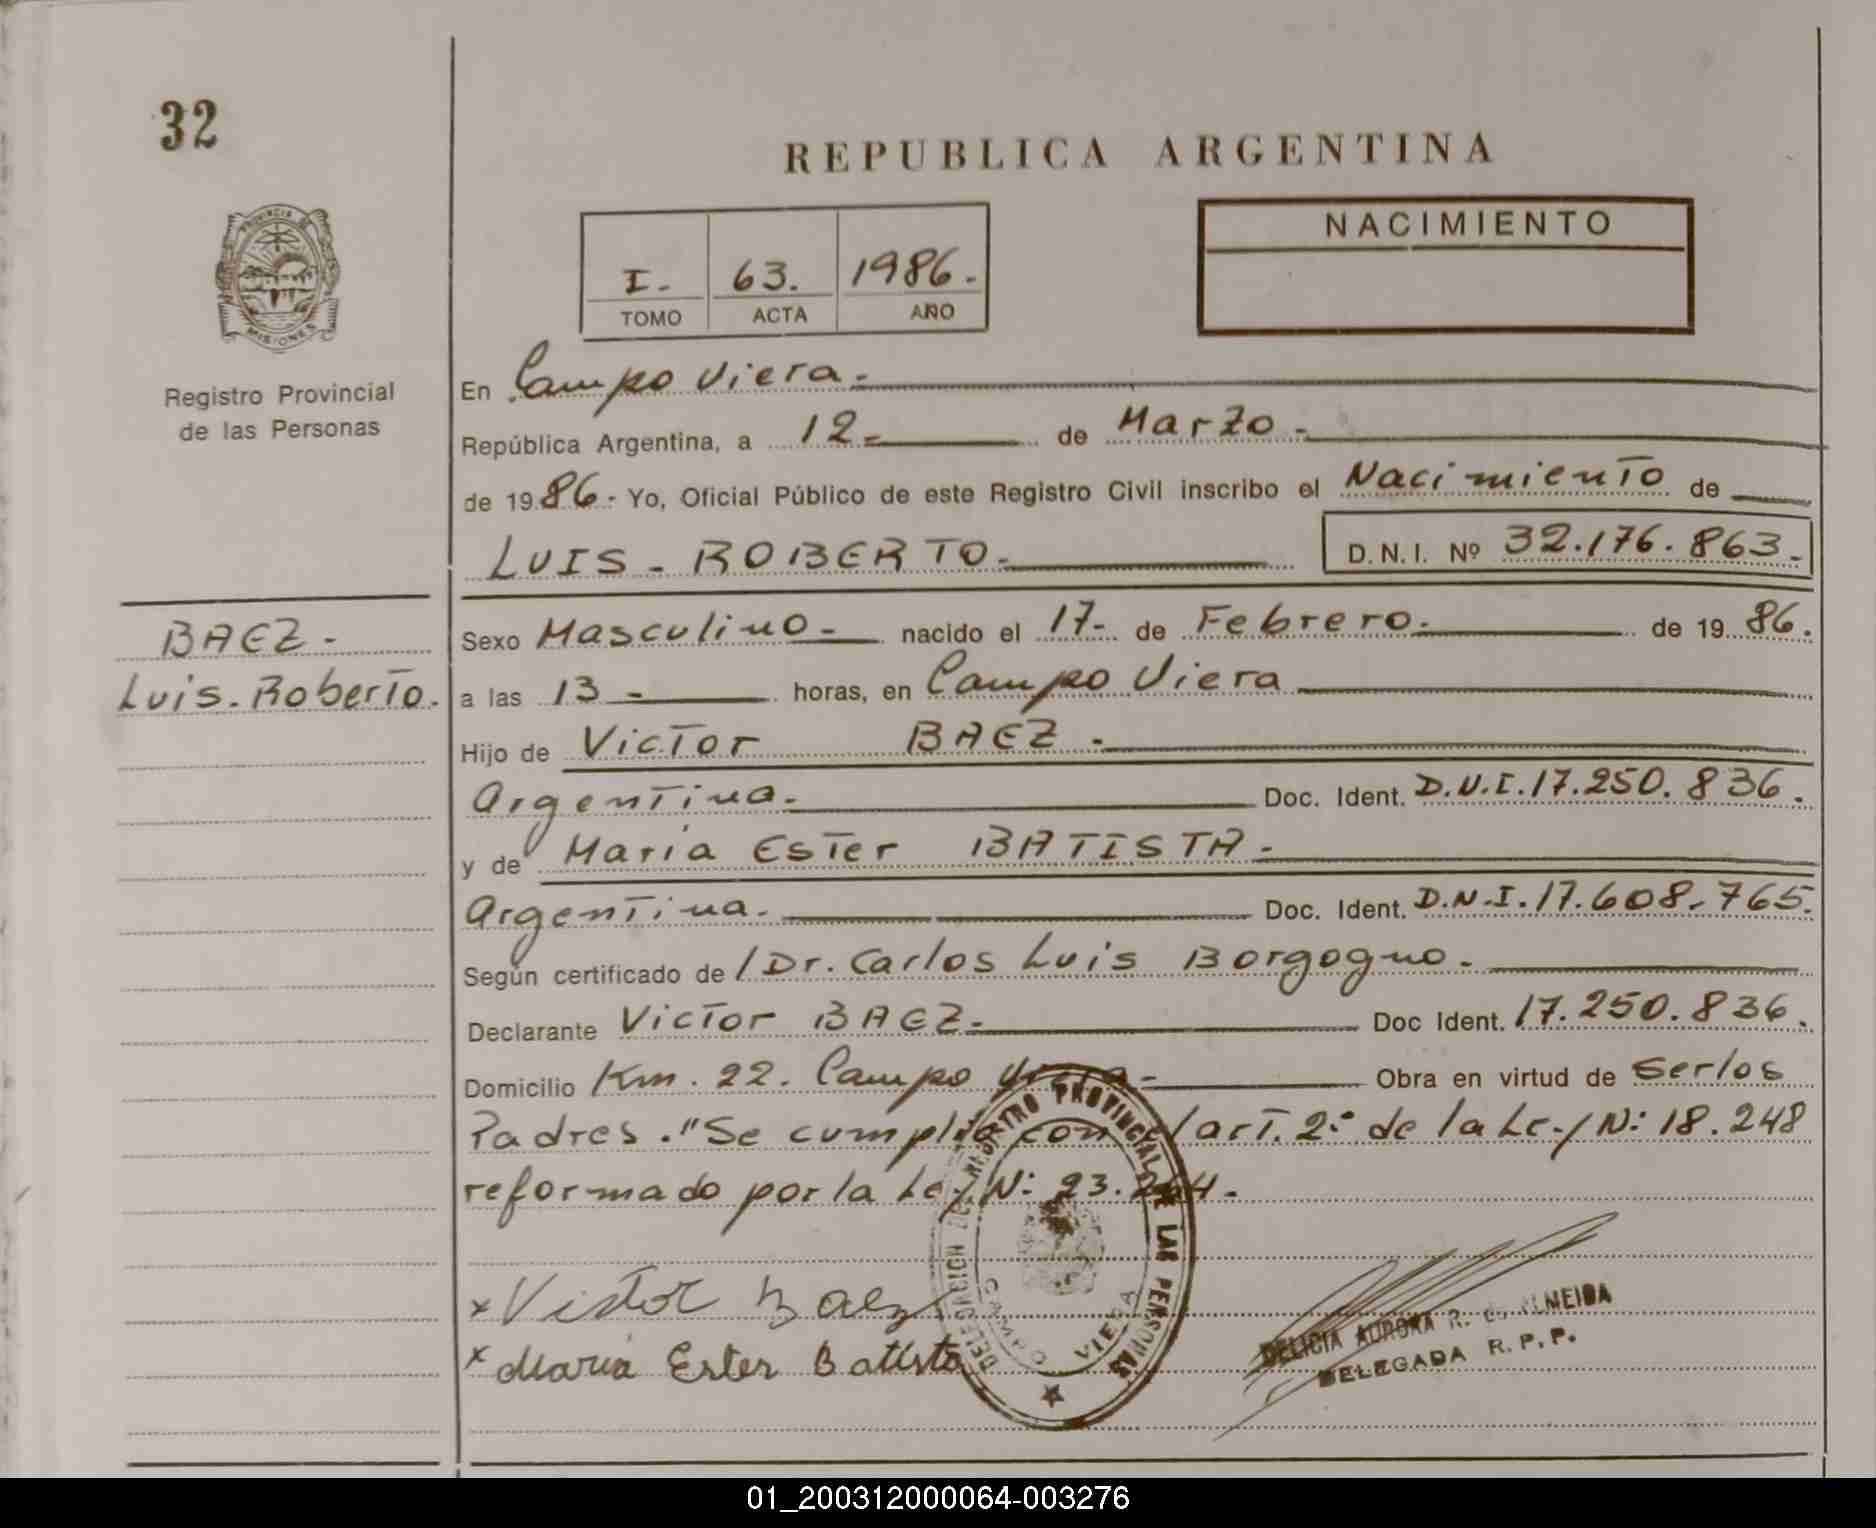 32
REPUBLICA ARGENTINA
PROVINCIA DE
MISIONES
Registro Provincial
de las Personas
I. 63. 1986.
TOMO ACTA AÑO
NACIMIENTO
En Campo Viera.
República Argentina, a 12 de Marzo.
de 1986. Yo, Oficial Público de este Registro Civil inscribo el Nacimiento de
LUIS - ROBERTO. D.N.I. Nº 32.176.863.
BAEZ -
Luis. Roberto.
Sexo Masculino nacido el 17 de Febrero. de 1986.
a las 13 horas, en Campo Viera
Hijo de Victor BAEZ.
Argentina. Doc. Ident. D.N.I. 17.250.836.
y de Maria Ester BATISTA.
Argentina. Doc. Ident. D.N.I. 17.608.765.
Según certificado de / Dr. Carlos Luis Borgogno.
Declarante Victor BAEZ. Doc Ident. 17.250.836.
Domicilio Km. 22. Campo Viera Obra en virtud de Serlos
Padres. "Se cumplió con art. 2º de la Ley Nº 18.248
reformado por la Ley Nº 23.264.
DELEGACION DEL REGISTRO PROVINCIAL DE LAS PERSONAS
CAMPO VIERA
x Victor Baez
x Maria Ester Batista
DELICIA AURORA R. ALMEIDA
DELEGADA R.P.P.
01_200312000064-003276